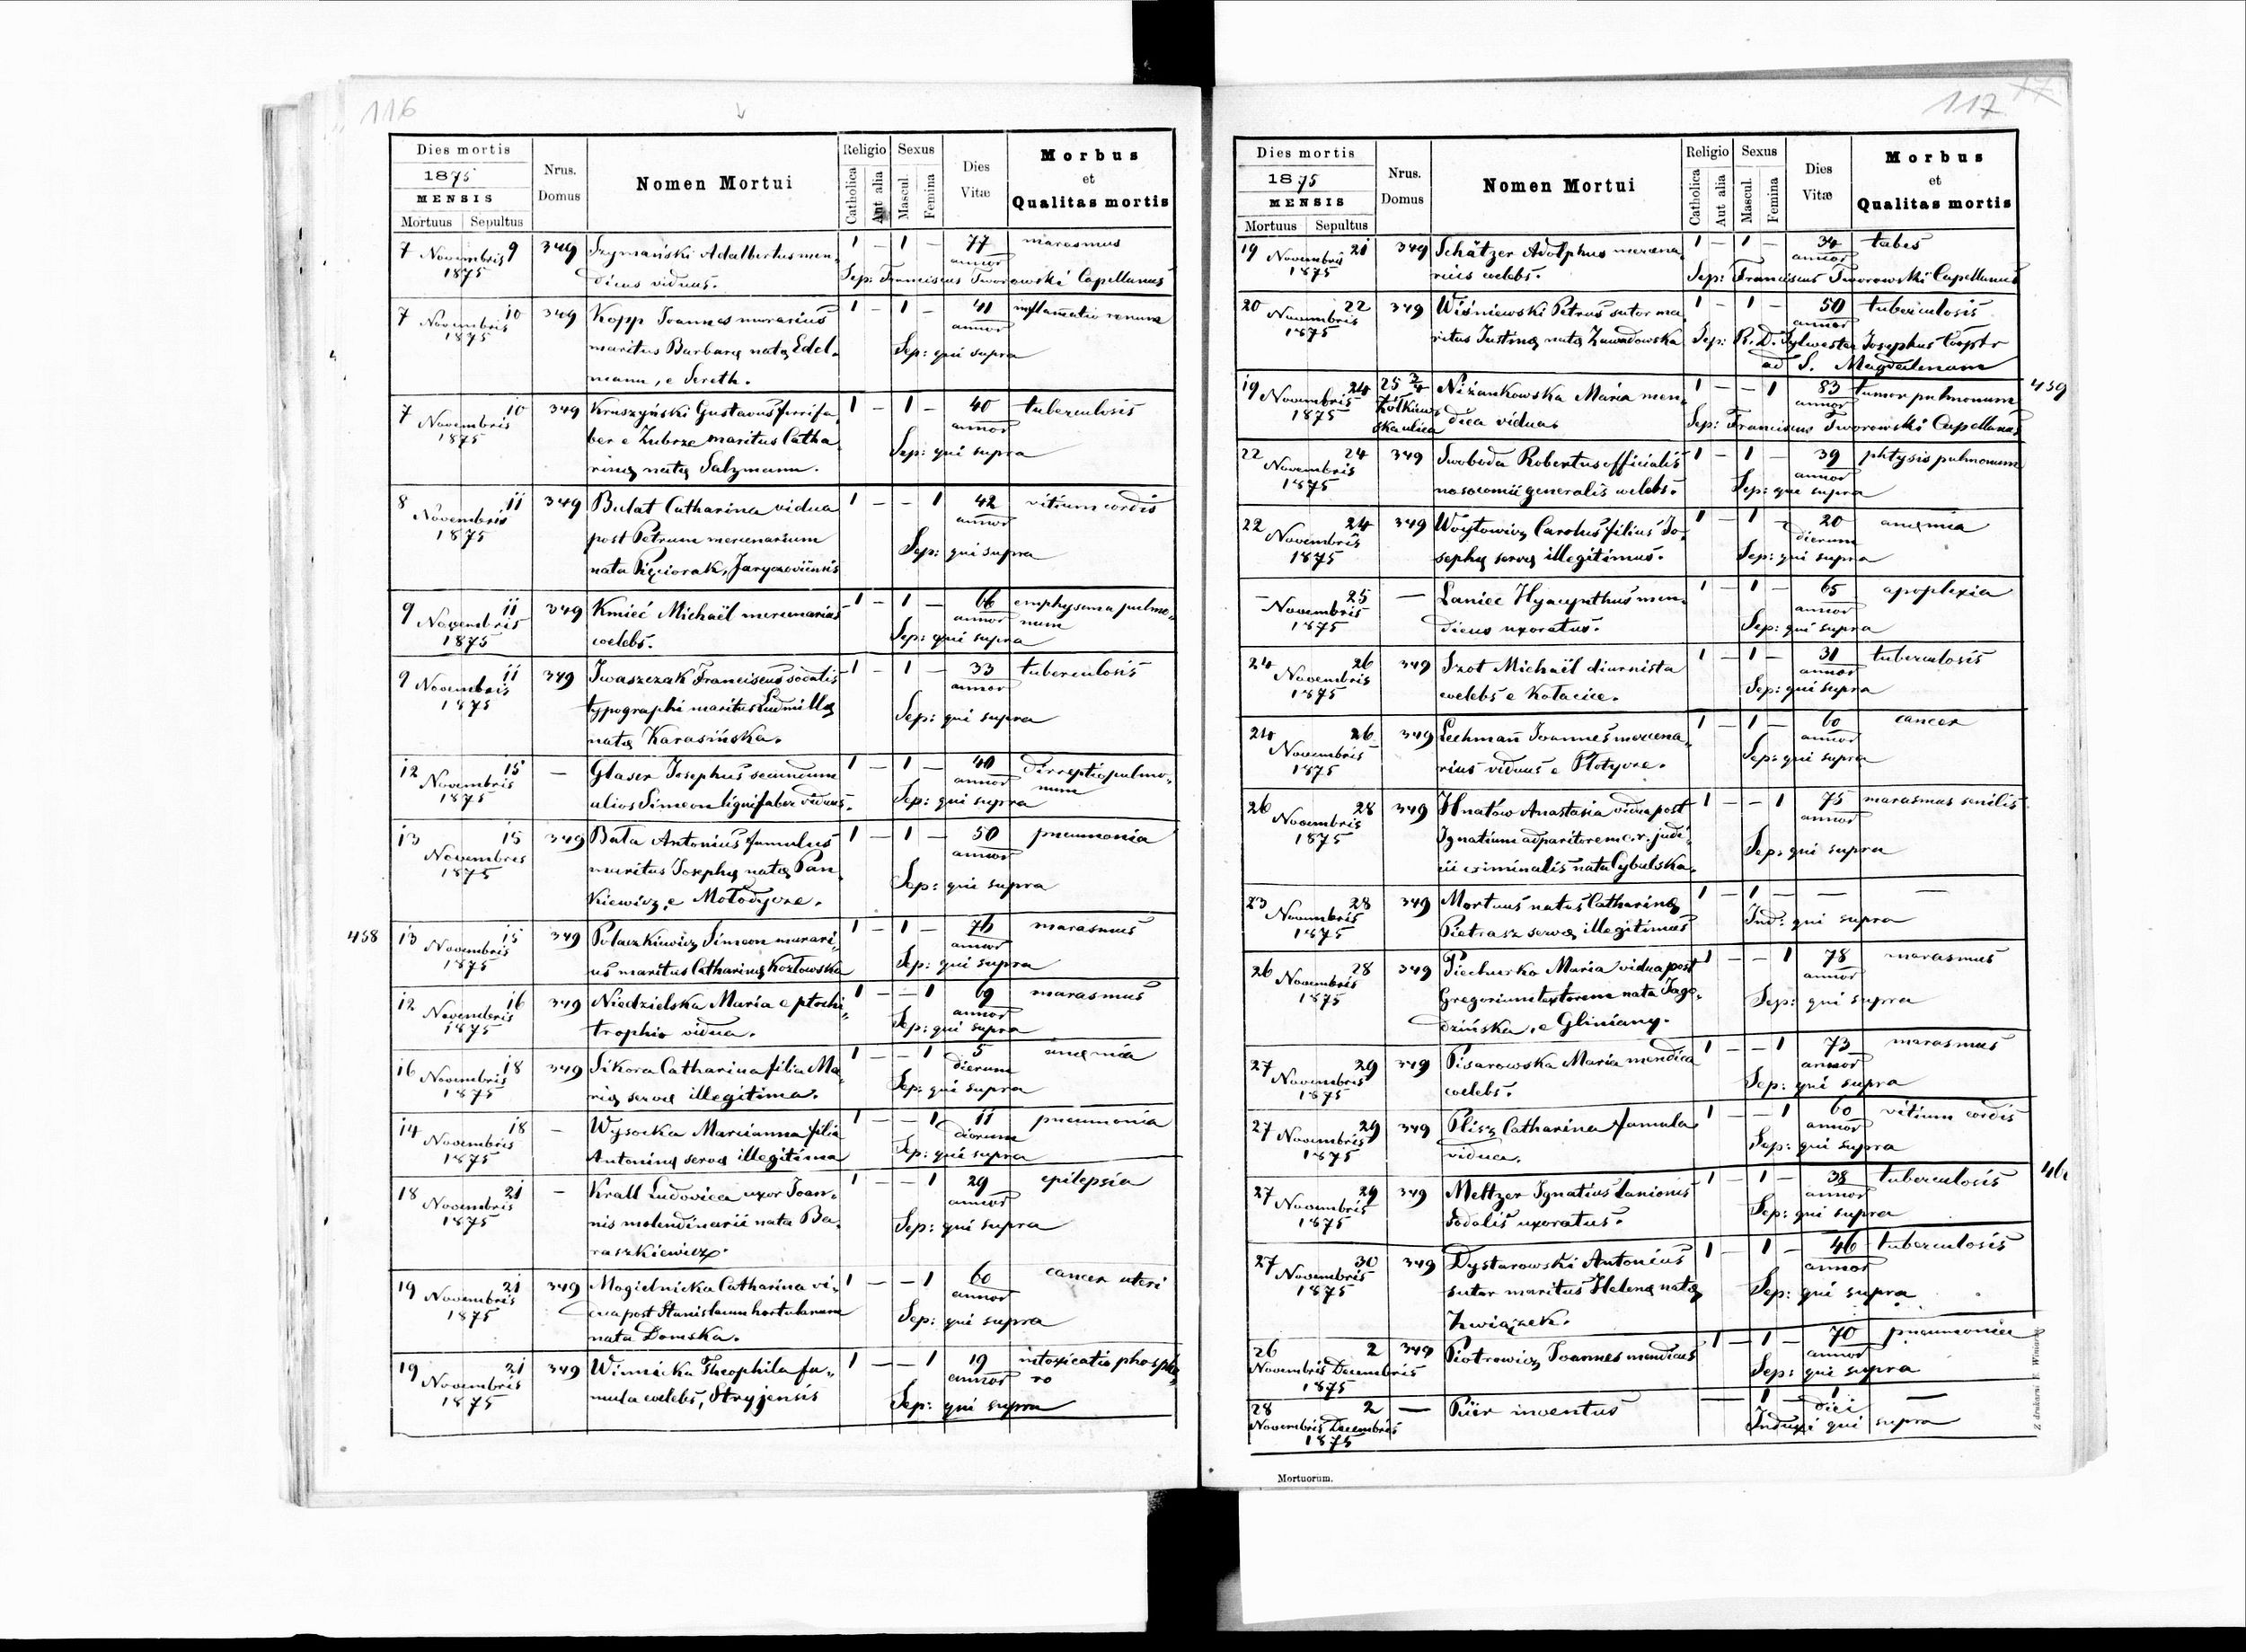 116
Dies mortis
1875
MENSIS
Mortuus Sepultus
Nrus. Domus
Nomen Mortui
Religio
Catholica
Aut alia
Sexus
Mascul.
Femina
Dies Vitæ
Morbus
et
Qualitas mortis
7 9 349 Szymański Adalbertus men- 1 – 1 – 77 marasmus
Novembris annor
1875 dicus viduus. Sep: Franciscus Tworowski Capellanus
7 10 349 Kopp Joannes murarius 1 – 1 – 41 inflamatio renum
Novembris annor
1875 maritus Barbarę natę Edel- Sep: qui supra
mann, e Sereth.
7 10 349 Kruszyński Gustavus ferrifa- 1 – 1 – 40 tuberculosis
Novembris annor
1875 ber e Zubrze maritus Catha- Sep: qui supra
rinę natę Salzmann.
8 11 349 Bulat Catharina vidua 1 – – 1 42 vitium cordis
Novembris annor
1875 post Petrum mercenarium Sep: qui supra
nata Pięciorak, Jaryczoviensis
9 11 349 Kmieć Michaël mercenarius 1 – 1 – 66 emphysema pulmo-
Novembris annor num
1875 coelebs. Sep: qui supra
9 11 349 Iwaszczak Franciscus sodalis 1 – 1 – 33 tuberculosis
Novembris annor
1875 typographi maritus Ludmillę Sep: qui supra
natę Karasińska.
12 15 – Glaser Josephus secundum 1 – 1 – 40 dirreptio pulmo-
Novembris annor num
1875 alios Simeon lignifaber viduus. Sep: qui supra
13 15 349 Bata Antonius famulus 1 – 1 – 50 pneumonia
Novembris annor
1875 maritus Josephę natę Pan- Sep: qui supra
kiewicz, e Mołodycze.
458 13 15 349 Polaczkiewicz Simeon murari- 1 – 1 – 76 marasmus
Novembris annor
1875 us maritus Catharinę Kozłowska Sep: qui supra
12 16 349 Niedzielska Maria e ptochi- 1 – – 1 69 marasmus
Novembris annor
1875 trophio vidua. Sep: qui supra
16 18 349 Sikora Catharina filia Ma- 1 – – 1 5 anęmia
Novembris dierum
1875 rię servę illegitima. Sep: qui supra
14 18 – Wysocka Marcianna filia 1 – – 1 11 pneumonia
Novembris dierum
1875 Antoninę servę illegitima Sep: qui supra
18 21 – Krall Ludovica uxor Joan- 1 – – 1 29 epilepsia
Novembris annor
1875 nis molendinarii nata Ba- Sep: qui supra
raszkiewicz.
19 21 349 Mogielnicka Catharina vi- 1 – – 1 60 cancer uteri
Novembris annor
1875 dua post Stanislaum hortulanum Sep: qui supra
nata Domska.
19 21 349 Winnicka Theophila fa- 1 – – 1 19 intoxicatio phospho-
Novembris annor ro
1875 mula coelebs, Stryjensis Sep: qui supra
117
Dies mortis
1875
MENSIS
Mortuus Sepultus
Nrus. Domus
Nomen Mortui
Religio
Catholica
Aut alia
Sexus
Mascul.
Femina
Dies Vitæ
Morbus
et
Qualitas mortis
19 21 349 Schätzer Adolphus mercena- 1 – 1 – 34 tabes
Novembris annor
1875 rius coelebs. Sep: Franciscus Tworowski Capellanus
20 22 349 Wiśniewski Petrus sutor ma- 1 – 1 – 50 tuberculosis
Novembris annor
1875 ritus Justinę natę Zawadowska Sep: R. D. Sylwester Josephus Cooptr
ad S. Magdalenam
19 24 25 3/4 Niżankowska Maria men- 1 – – 1 83 tumor pulmonum 459
Novembris Żółkiew- annor
1875 ska ulica dica vidua. Sep: Franciscus Tworowski Capellanus
22 24 349 Swoboda Robertus officialis 1 – 1 – 39 phtysis pulmonum
Novembris annor
1875 nosocomii generalis coelebs. Sep: qui supra
22 24 349 Woytowicz Carolus filius Jo- 1 – 1 – 20 anęmia
Novembris dierum
1875 sephę servę illegitimus. Sep: qui supra
– 25 – Laniec Hyacynthus men- 1 – 1 – 65 apoplexia
Novembris annor
1875 dicus uxoratus. Sep: qui supra
24 26 349 Szot Michaël diurnista 1 – 1 – 31 tuberculosis
Novembris annor
1875 coelebs e Kołacice. Sep: qui supra
24 26 349 Lechmañ Joannes mercena- 1 – 1 – 60 cancer
Novembris annor
1875 rius viduus e Płotycze. Sep: qui supra
26 28 349 Hnatów Anastasia vidua post 1 – – 1 75 marasmus senilis
Novembris annor
1875 Ignatium adparitorem c. r. judi- Sep: qui supra
cii criminalis nata Cybulska.
23 28 349 Mortuus natus Catharinę 1 – 1 – – –
Novembris
1875 Pietrasz servę illegitimus Ind: qui supra
26 28 349 Piechurka Maria vidua post 1 – – 1 78 marasmus
Novembris annor
1875 Gregorium textorem nata Jago- Sep: qui supra
dzińska, e Gliniany.
27 29 349 Pisarowska Maria mendica 1 – – 1 73 marasmus
Novembris annor
1875 coelebs. Sep: qui supra
27 29 349 Plisz Catharina famula 1 – – 1 60 vitium cordis
Novembris annor
1875 vidua. Sep: qui supra
27 29 349 Meltzer Ignatius lanionis 1 – 1 – 38 tuberculosis
Novembris annor
1875 sodalis uxoratus. Sep: qui supra
27 30 349 Dystarowski Antonius 1 – 1 – 46 tuberculosis
Novembris annor
1875 sutor maritus Helenę natę Sep: qui supra
Związek.
26 2 349 Piotrowicz Joannes mendicus 1 – 1 – 70 pneumonia
Novembris Decembris annor
1875 Sep: qui supra
28 2 – Puer inventus – 1 1 –
Novembris Decembris diei
1875 Induxi qui supra
Mortuorum.